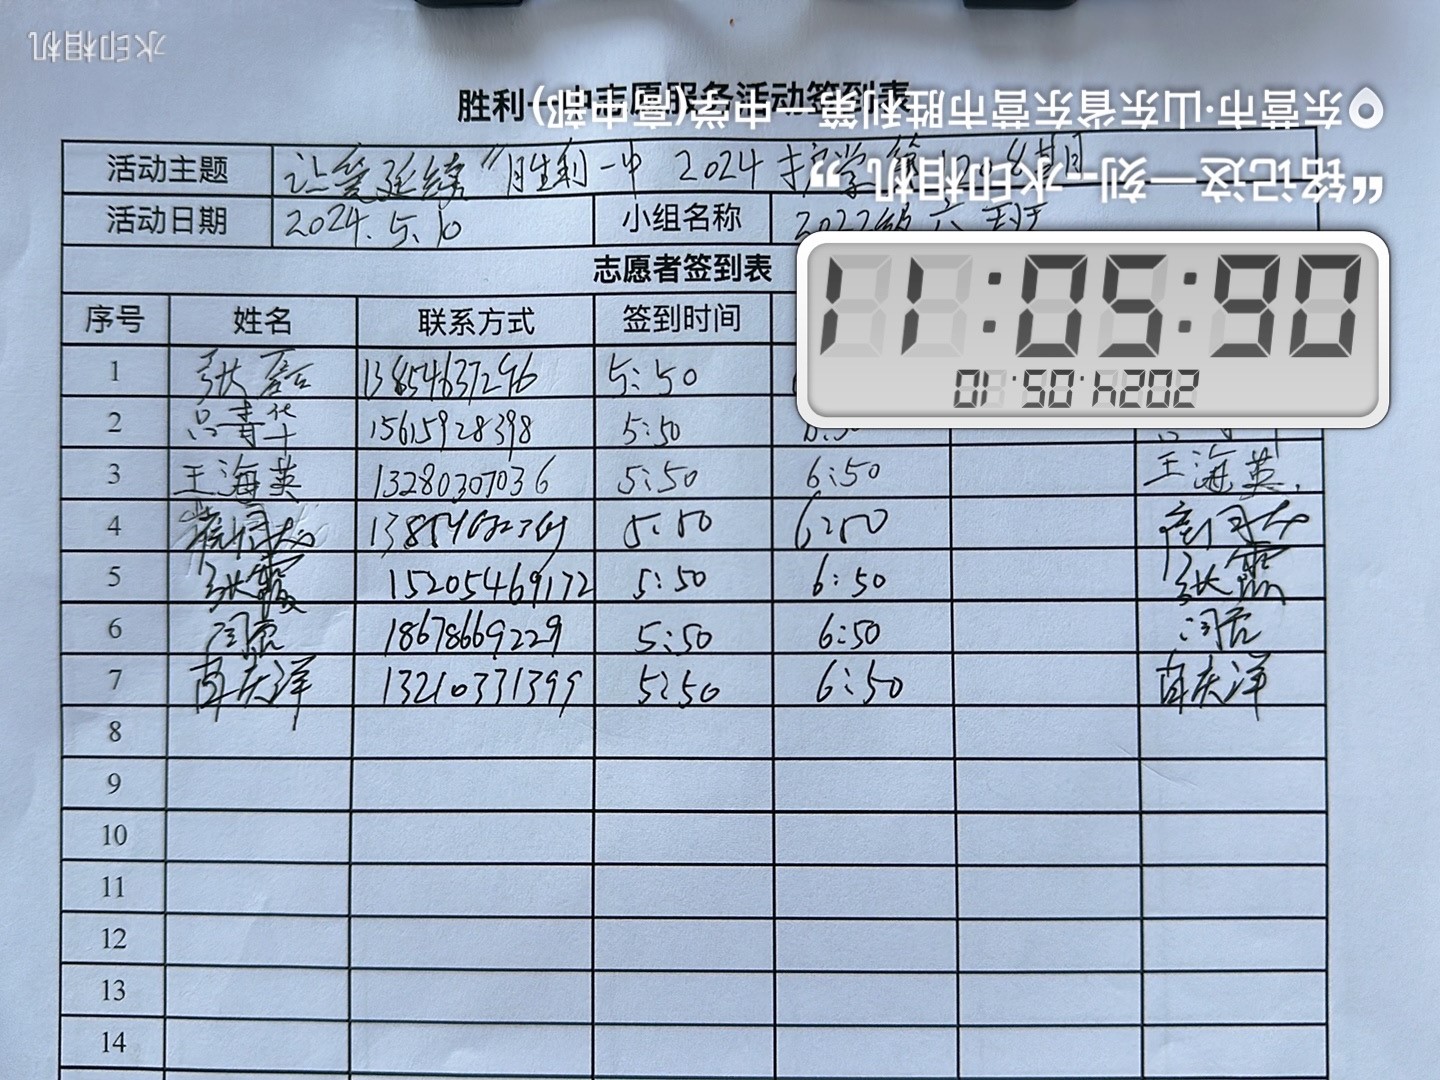 水印相机
胜利一中志愿服务活动签到表
东营市·山东省东营市胜利第一中学(高中部)
“铭记这一刻-水印相机”
06:50:11
2024.05.10
活动主题 让爱延续“胜利一中 2024 护学
活动日期 2024.5.10 小组名称 2022级六班
志愿者签到表
序号 姓名 联系方式 签到时间
1 张磊 13854637296 5:50
2 吕青华 15615928398 5:50
3 王海英 13280307036 5:50 6:50 王海英
4 5:50 6:50
5 张霞 15205469172 5:50 6:50 张霞
6 闫亮 18678669229 5:50 6:50 闫亮
7 苗庆洋 13210331399 5:50 6:50 苗庆洋
8
9
10
11
12
13
14